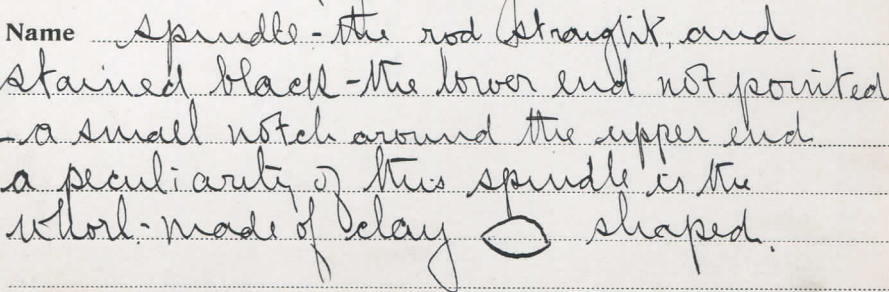 Name Spindle - the rod straight, and
stained black - the lower end not pointed
- a small notch around the upper end.
a peculiarity of this spindle is the
whorl - made of clay shaped.